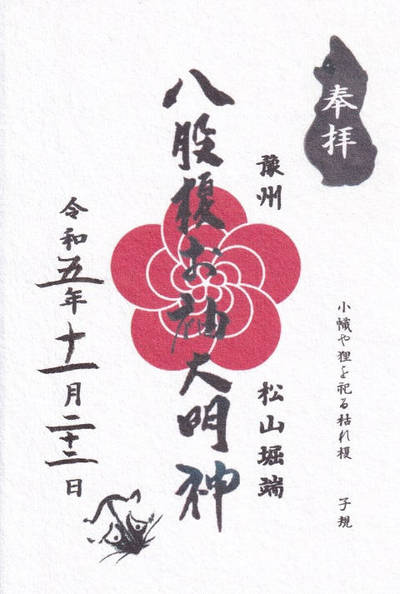 奉拝
小幟や狸を祀る枯れ榎　子規
豫州　松山堀端
八股榎お袖大明神
令和五年十一月二十二日